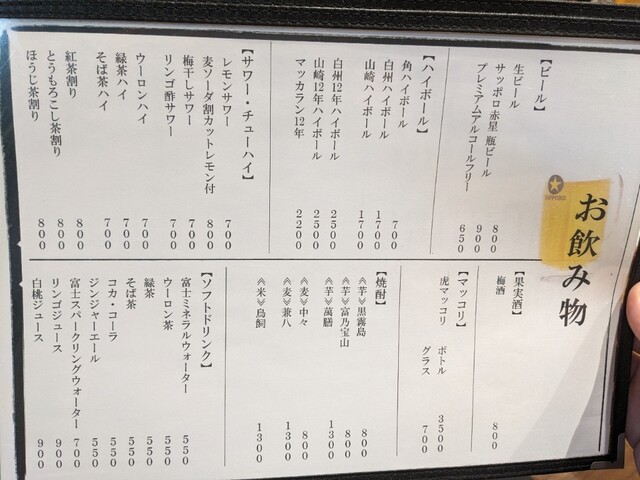 お飲み物
SAPPORO
【ビール】
生ビール 800
サッポロ赤星 瓶ビール 900
プレミアムアルコールフリー 650
【ハイボール】
角ハイボール 700
白州ハイボール 1700
山崎ハイボール 1700
白州12年ハイボール 2500
山崎12年ハイボール 2500
マッカラン12年 2200
【サワー・チューハイ】
レモンサワー 700
麦ソーダ割カットレモン付 800
梅干しサワー 700
リンゴ酢サワー 700
ウーロンハイ 700
緑茶ハイ 700
そば茶ハイ 700
紅茶割り 800
とうもろこし茶割り 800
ほうじ茶割り 800
【果実酒】
梅酒 800
【マッコリ】
虎マッコリ ボトル 3500
グラス 700
【焼酎】
≪芋≫黒霧島 800
≪芋≫富乃宝山 800
≪芋≫萬膳 1300
≪麦≫中々 800
≪麦≫兼八 1300
≪米≫鳥飼 1300
【ソフトドリンク】
富士ミネラルウォーター 550
ウーロン茶 550
緑茶 550
そば茶 550
コカ・コーラ 550
ジンジャーエール 550
富士スパークリングウォーター 700
リンゴジュース 900
白桃ジュース 900